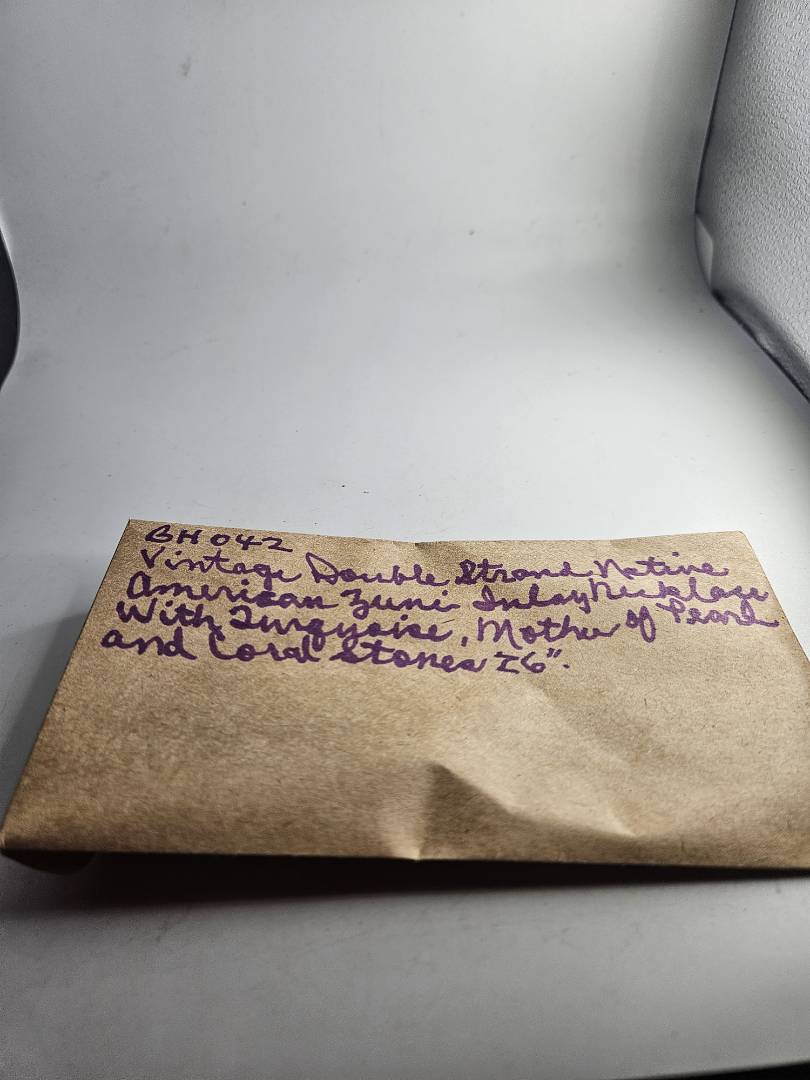 BH042
Vintage Double Strand Native
American Zuni Inlay Necklace
With Turquoise, Mother of Pearl
and Coral Stones 16".